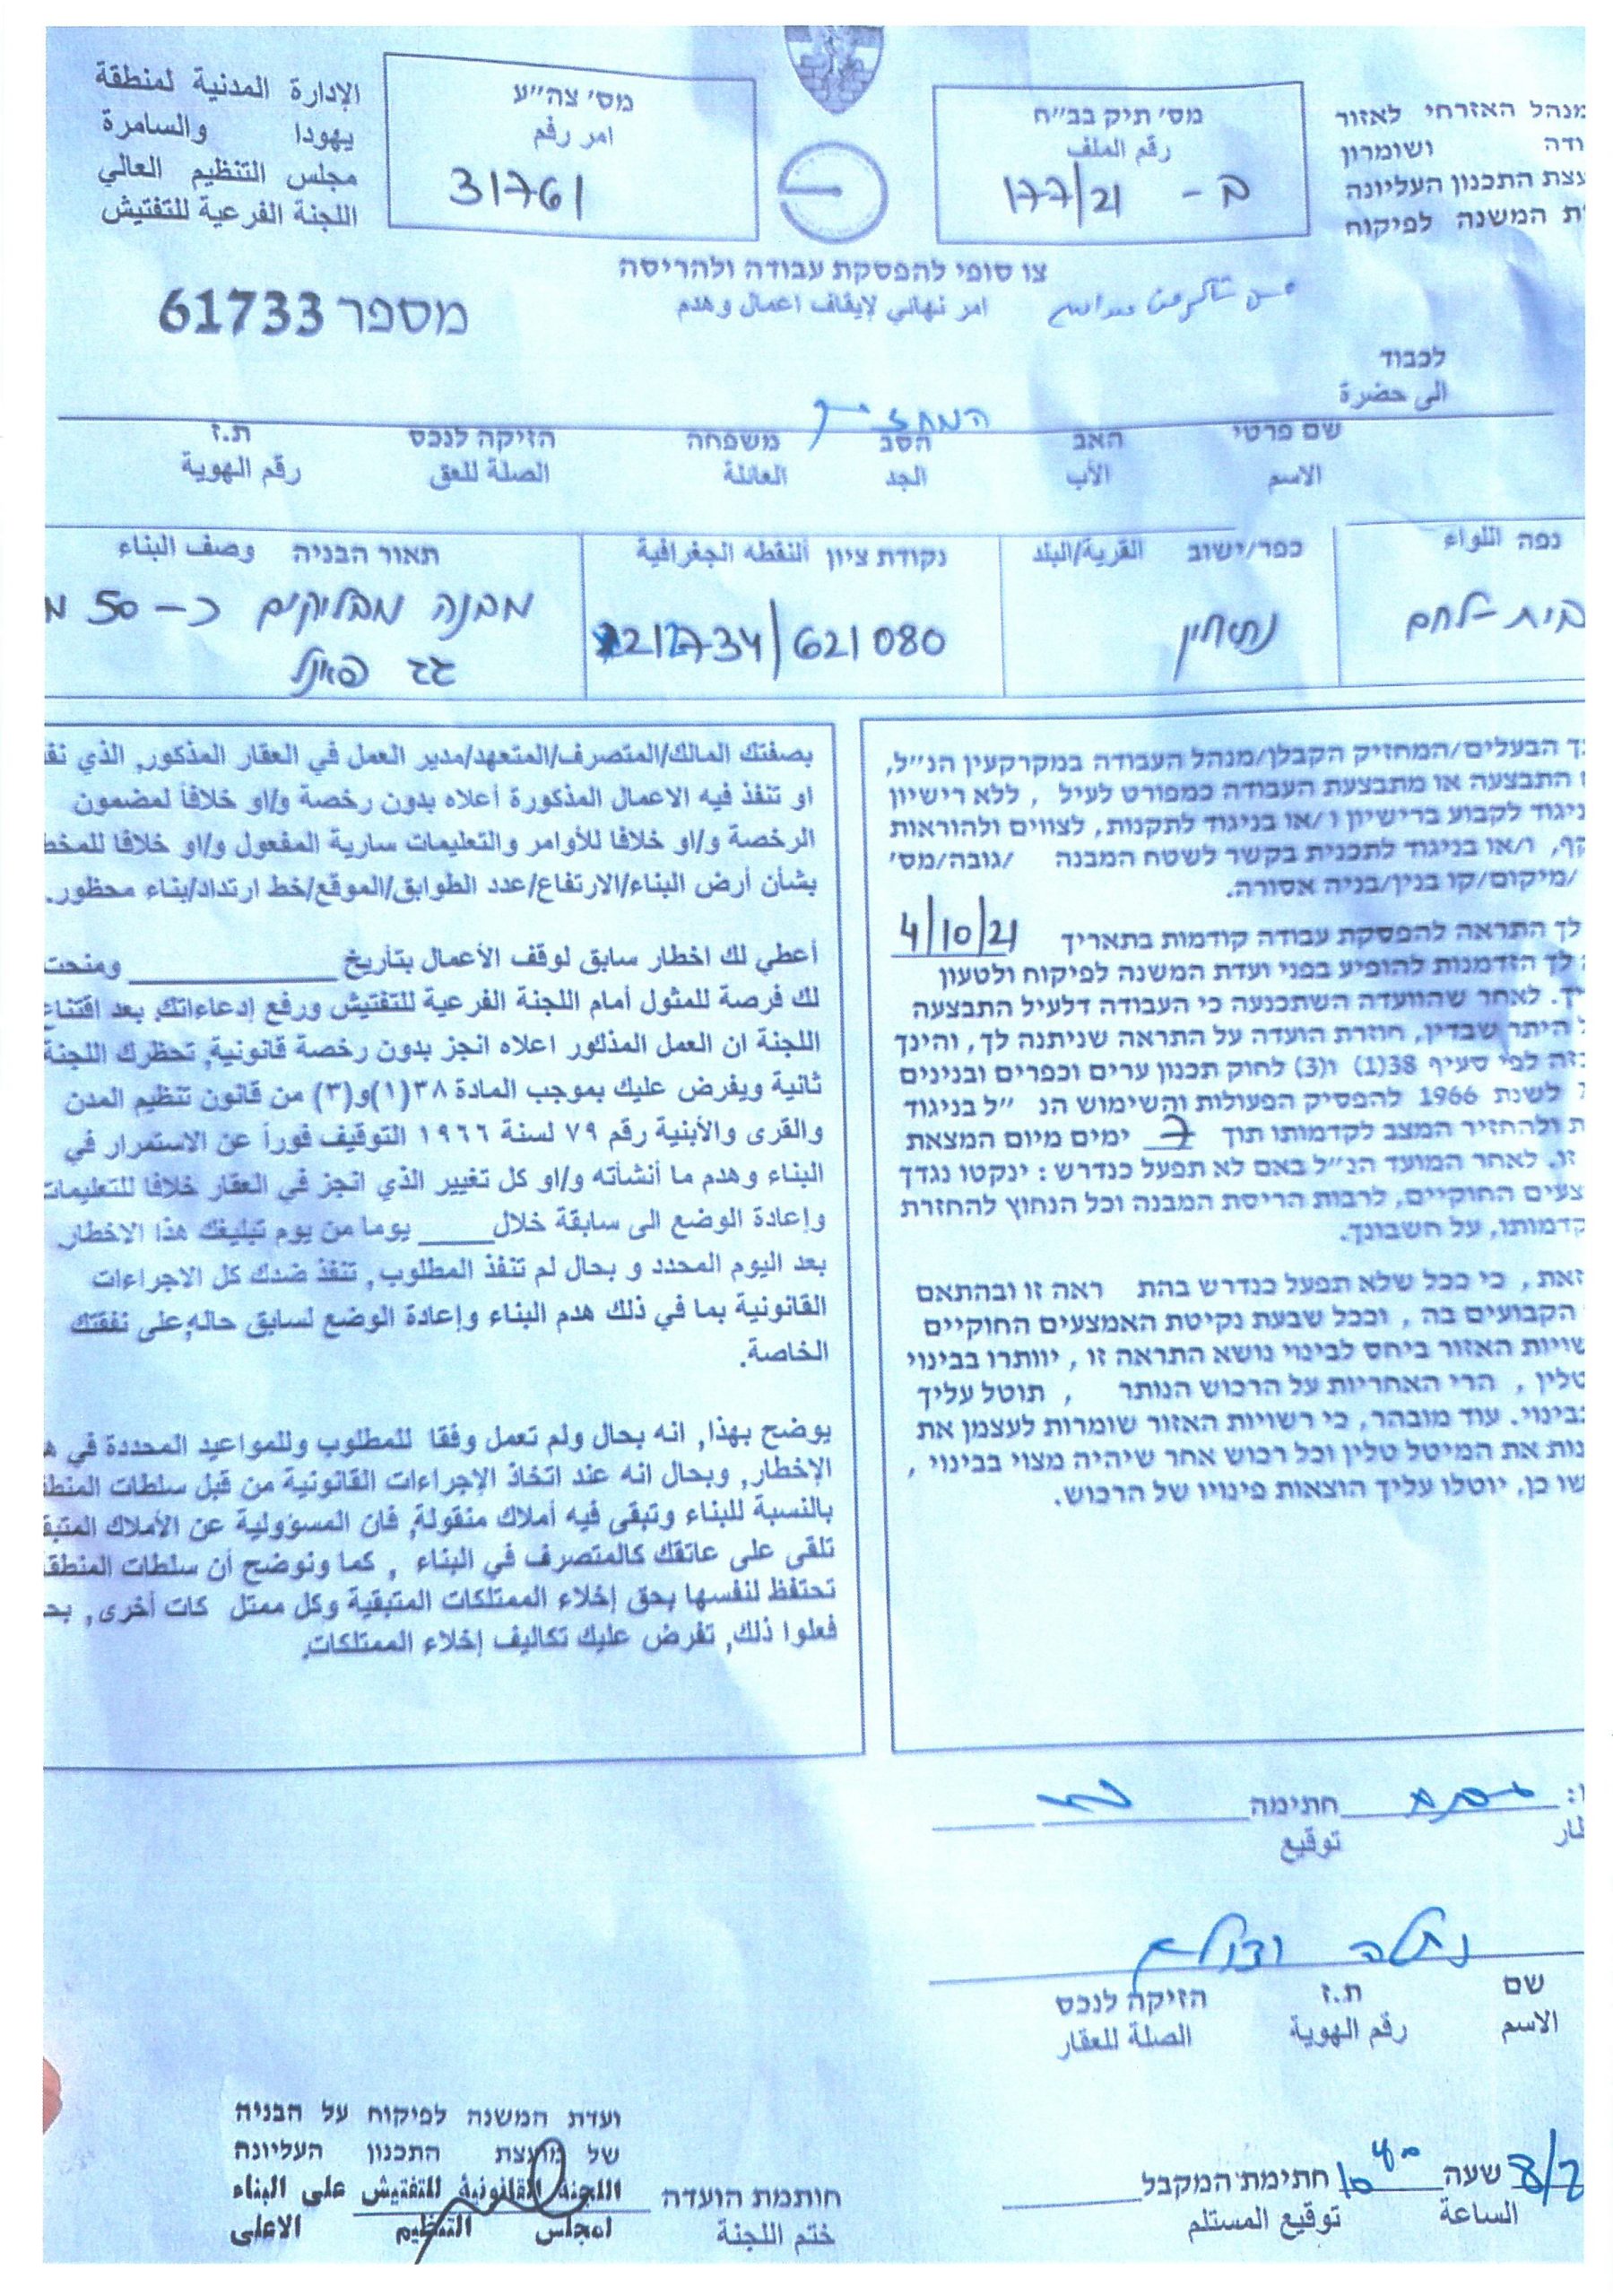 מנהל האזרחי לאזור
ודה ושומרון
עצת התכנון העליונה
ת המשנה לפיקוח
מס׳ תיק בב״ח
رقم الملف
ב - 177/21
מס׳ צה״ע
امر رقم
31761
الإدارة المدنية لمنطقة
يهودا والسامرة
مجلس التنظيم العالي
اللجنة الفرعية للتفتيش
צו סופי להפסקת עבודה ולהריסה
امر نهائي لإيقاف اعمال وهدم
מספר 61733
לכבוד
الى حضرة
המחזיק
שם פרטי האב הסב משפחה הזיקה לנכס ת.ז
الاسم الأب الجد العائلة الصلة للعق رقم الهوية
نفه اللواء
בית-לחם
כפר/ישוב القرية/البلد
נחאלין
נקודת ציון النقطه الجغرافية
212734/621080
תאור הבניה وصف البناء
מבנה מבלוקים כ-50 מ
גג פאנל
ך הבעלים/המחזיק הקבלן/מנהל העבודה במקרקעין הנ״ל,
התבצעה או מתבצעת העבודה כמפורט לעיל , ללא רישיון
ניגוד לקבוע ברישיון ו/או בניגוד לתקנות, לצווים ולהוראות
קף, ו/או בניגוד לתכנית בקשר לשטח המבנה /גובה/מס׳
/מיקום/קו בנין/בניה אסורה.
לך התראה להפסקת עבודה קודמות בתאריך 4/10/21
לך הזדמנות להופיע בפני ועדת המשנה לפיקוח ולטעון
יך. לאחר שהוועדה השתכנעה כי העבודה דלעיל התבצעה
היתר שבדין, חוזרת הועדה על התראה שניתנה לך, והינך
זה לפי סעיף 38(1) ו(3) לחוק תכנון ערים וכפרים ובנינים
לשנת 1966 להפסיק הפעולות והשימוש הנ ״ל בניגוד
ת ולהחזיר המצב לקדמותו תוך 7 ימים מיום המצאת
זו. לאחר המועד הנ״ל באם לא תפעל כנדרש : ינקטו נגדך
צעים החוקיים, לרבות הריסת המבנה וכל הנחוץ להחזרת
קדמותו, על חשבונך.
זאת , כי ככל שלא תפעל כנדרש בהת ראה זו ובהתאם
הקבועים בה , וככל שבעת נקיטת האמצעים החוקיים
שויות האזור ביחס לבינוי נושא התראה זו , יוותרו בבינוי
טלין , הרי האחריות על הרכוש הנותר , תוטל עליך
בבינוי. עוד מובהר, כי רשויות האזור שומרות לעצמן את
נות את המיטל טלין וכל רכוש אחר שיהיה מצוי בבינוי ,
שו כן, יוטלו עליך הוצאות פינויו של הרכוש.
بصفتك المالك/المتصرف/المتعهد/مدير العمل في العقار المذكور, الذي نف
او تنفذ فيه الاعمال المذكورة أعلاه بدون رخصة و/او خلافاً لمضمون
الرخصة و/او خلافا للأوامر والتعليمات سارية المفعول و/او خلافا للمخط
بشأن أرض البناء/الارتفاع/عدد الطوابق/الموقع/خط ارتداد/بناء محظور.
أعطي لك اخطار سابق لوقف الأعمال بتأريخ ______ ومنحت
لك فرصة للمثول أمام اللجنة الفرعية للتفتيش ورفع إدعاءاتك, بعد اقتناع
اللجنة ان العمل المذكور اعلاه انجز بدون رخصة قانونية, تحظرك اللجنة
ثانية ويفرض عليك بموجب المادة ٣٨(١)و(٣) من قانون تنظيم المدن
والقرى والأبنية رقم ٧٩ لسنة ١٩٦٦ التوقيف فوراً عن الاستمرار في
البناء وهدم ما أنشأته و/او كل تغيير الذي انجز في العقار خلافا للتعليمات
وإعادة الوضع الى سابقة خلال____ يوما من يوم تبليغك هذا الاخطار.
بعد اليوم المحدد و بحال لم تنفذ المطلوب, تنفذ ضدك كل الاجراءات
القانونية بما في ذلك هدم البناء وإعادة الوضع لسابق حاله,على نفقتك
الخاصة.
يوضح بهذا, انه بحال ولم تعمل وفقا للمطلوب وللمواعيد المحددة في ه
الإخطار, وبحال انه عند اتخاذ الإجراءات القانونية من قبل سلطات المنط
بالنسبة للبناء وتبقى فيه أملاك منقولة, فان المسؤولية عن الأملاك المتبق
تلقى على عاتقك كالمتصرف في البناء , كما ونوضح أن سلطات المنطق
تحتفظ لنفسها بحق إخلاء الممتلكات المتبقية وكل ممتل كات أخرى, بح
فعلوا ذلك, تفرض عليك تكاليف إخلاء الممتلكات.
חתימה
توقيع
שם ת.ז הזיקה לנכס
الاسم رقم الهوية الصلة للعقار
שעה חתימת המקבל
الساعة توقيع المستلم
חותמת הועדה
ختم اللجنة
ועדת המשנה לפיקוח על הבניה
של מועצת התכנון העליונה
اللجنة القانونية للتفتيش على البناء
لمجلس التنظيم الاعلى